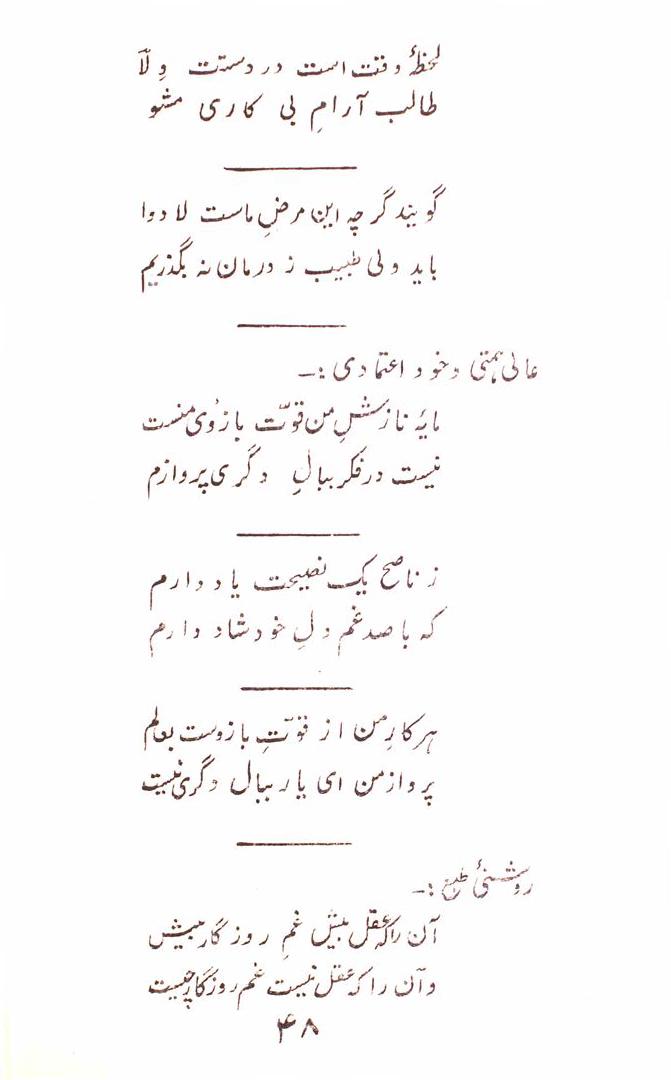 لحظۂ وقت است در دستت وِلّا
طالب آرامِ بی کاری مشو
گویند گرچہ این مرضِ ماست لا دوا
باید ولی طبیب ز درمان نہ بگذریم
عالی ہمتی و خود اعتمادی :۔
مایۂ نازشِ من قوّتِ بازوی منست
نیست در فکر ببالِ دگری پروازم
ز ناصح یک نصیحت یاد دارم
کہ با صد غم دلِ خود شاد دارم
ہر کارِ من از قوّتِ بازوست بعالم
پروازِ من ای یار ببال دگری نیست
روشنئ طبع :۔
آن را کہ عقل بیش غمِ روزگار بیش
و آن را کہ عقل نیست غم روزگار چیست
۴۸